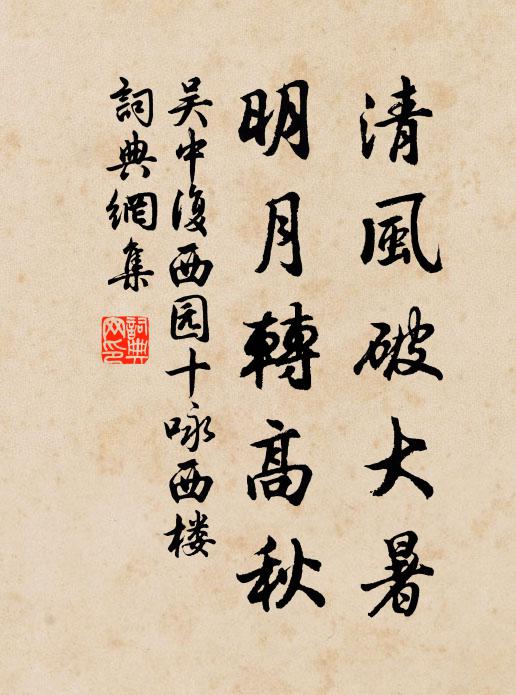 清風破大暑
明月轉高秋
吴中復西园十咏西楼
詞典網集
詞典網印